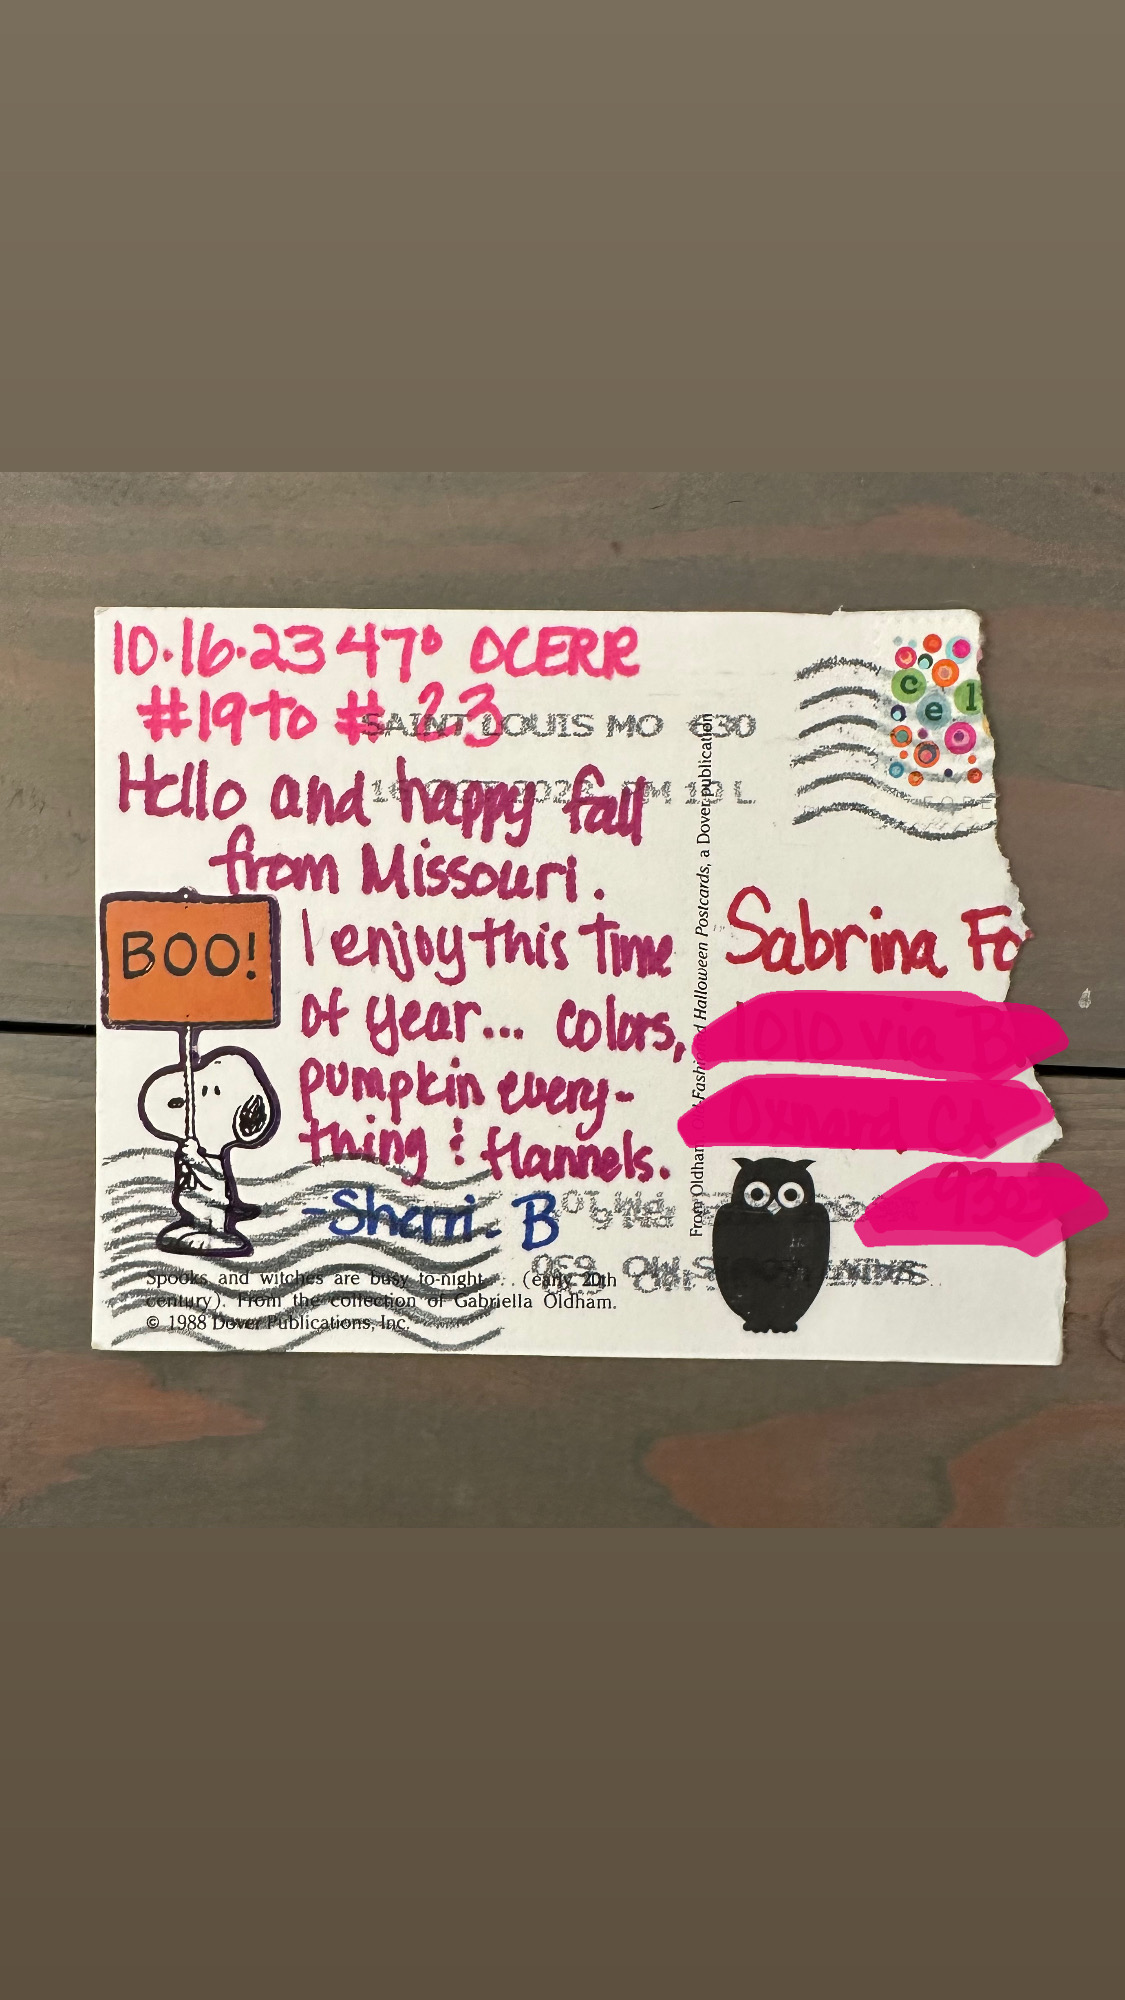 10.16.23 47° OCERR
#19 to #23
SAINT LOUIS MO 630
Hello and happy fall
from Missouri.
BOO!
I enjoy this time
of year... colors,
pumpkin every-
thing & flannels.
-Sherri. B
Spooks and witches are busy to-night . . . (early 20th
century). From the collection of Gabriella Oldham.
© 1988 Dover Publications, Inc.
From Oldham, Halloween Postcards, a Dover publication
cel
Sabrina Fo